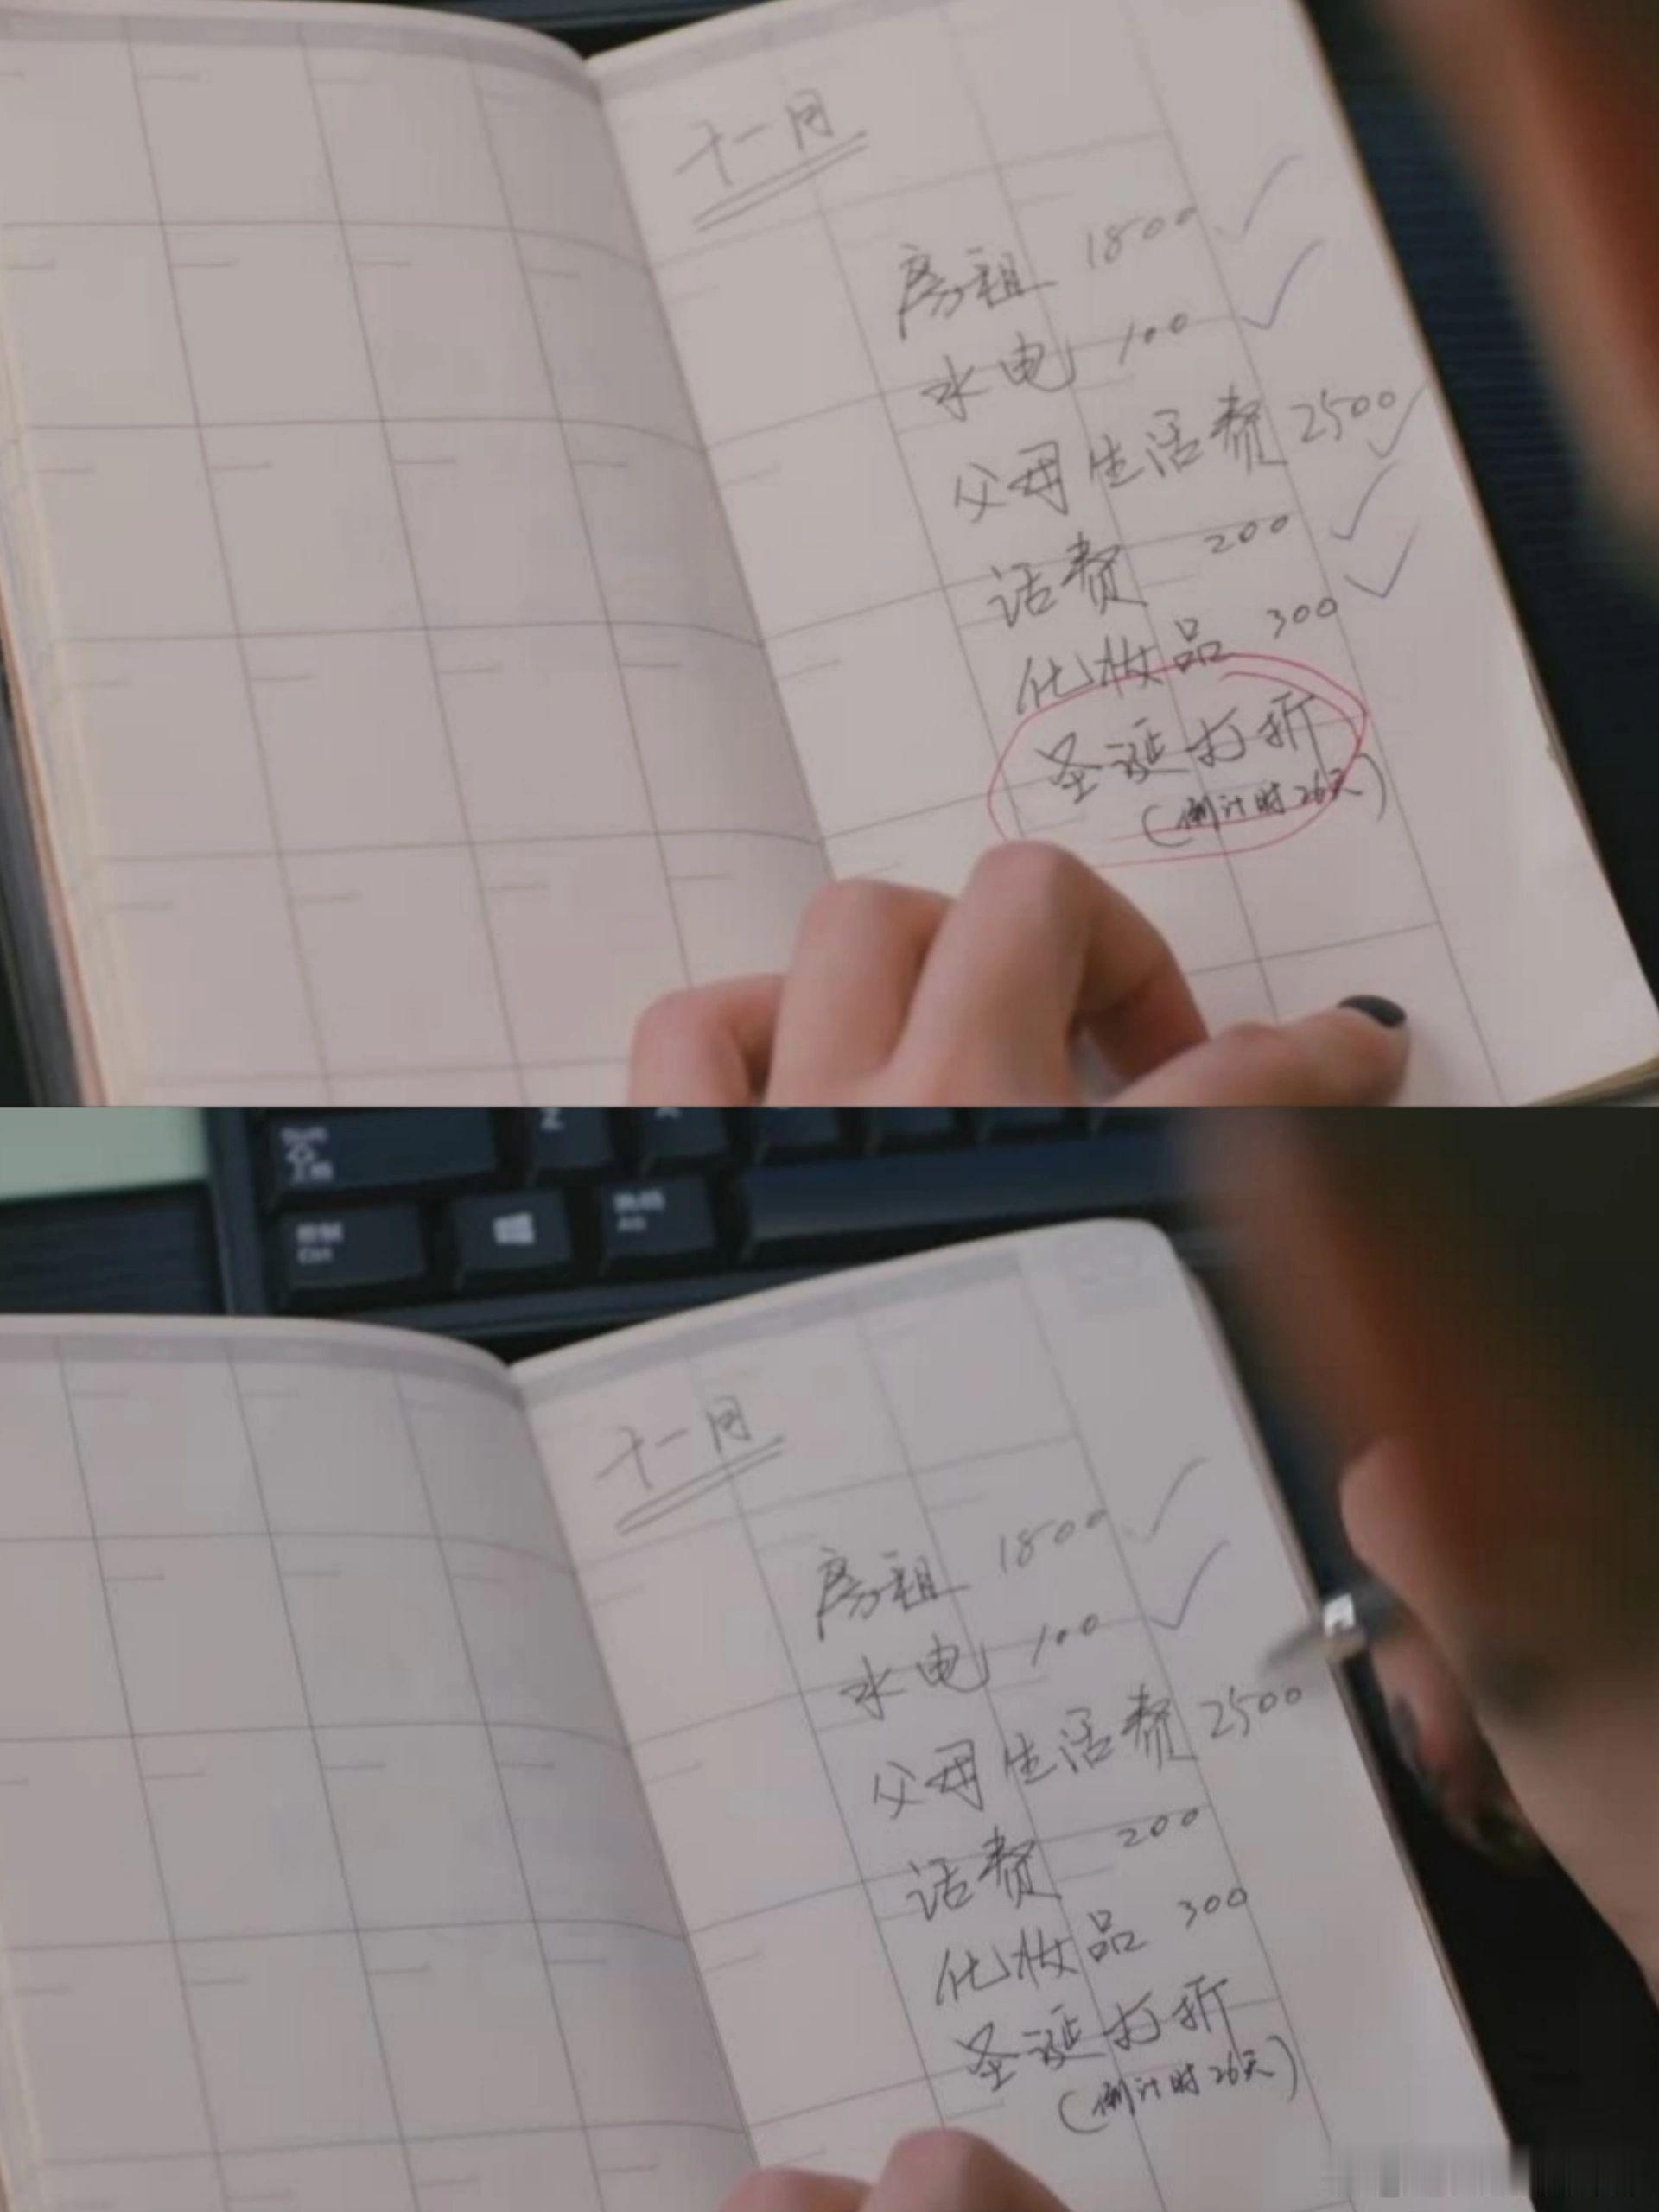 十一月
房租 1800
水电 100
父母生活费 2500
话费 200
化妆品 300
圣诞打折
(倒计时26天)
Ctrl
十一月
房租 1800
水电 100
父母生活费 2500
话费 200
化妆品 300
圣诞打折
(倒计时26天)